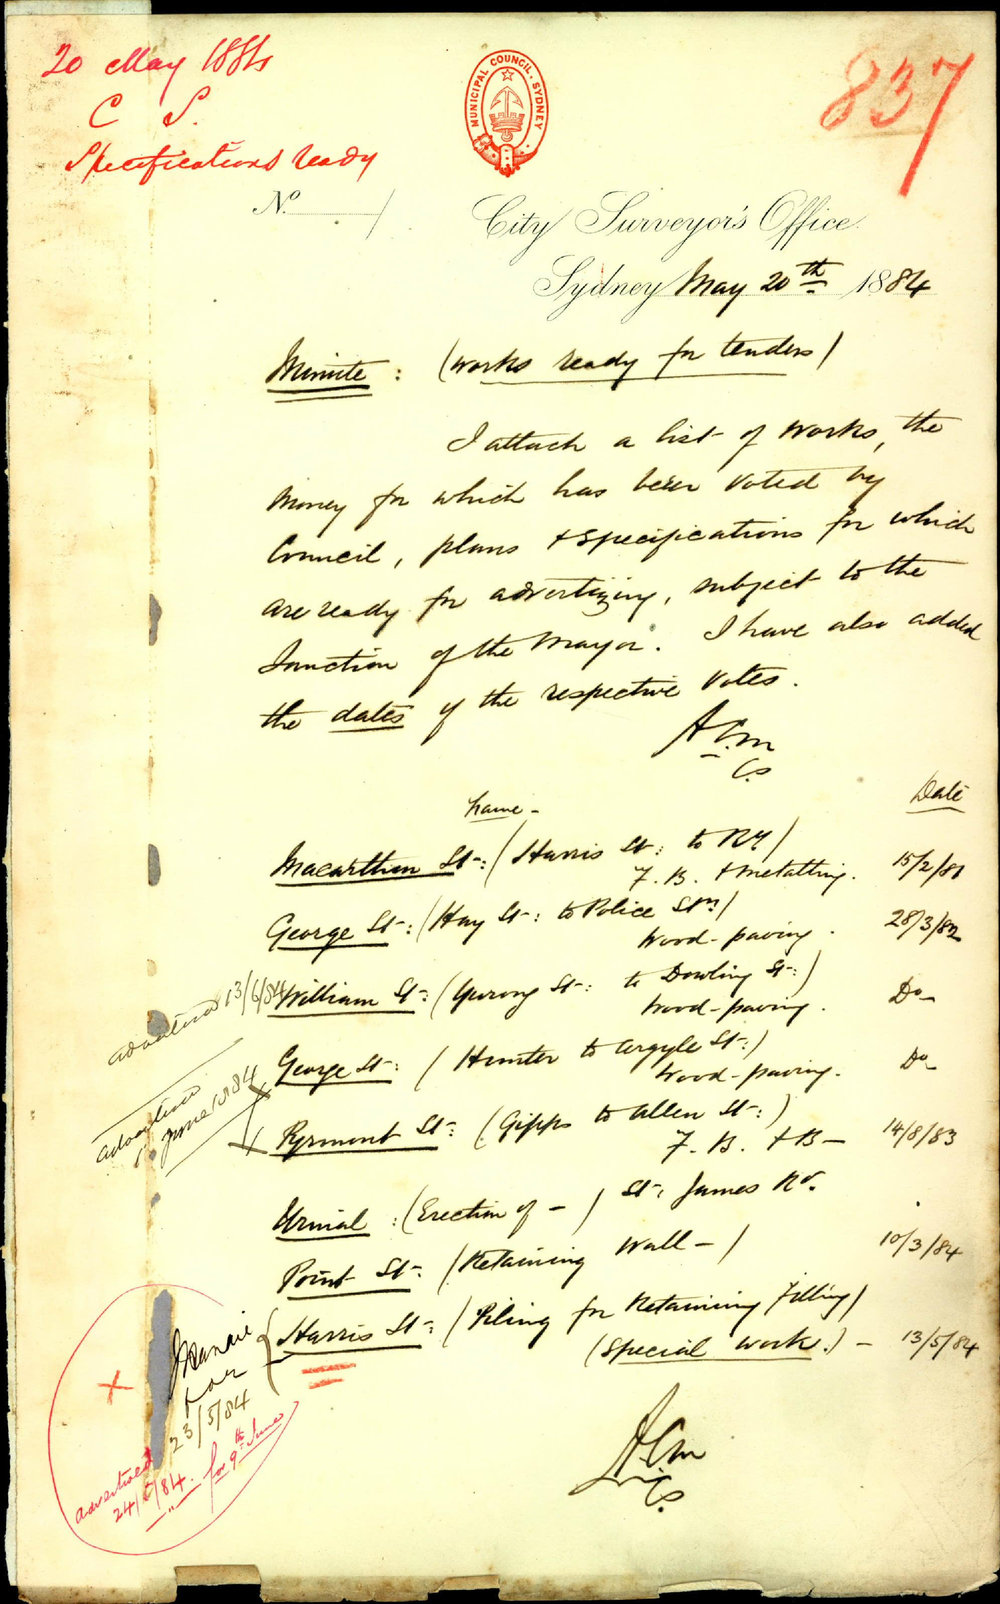 20 May 1884
C S.
Specifications ready
MUNICIPAL COUNCIL, SYDNEY
837
No.
City Surveyor's Office
Sydney May 20th 1884
Minute : (works ready for tenders)
I attach a list of works, the
money for which has been voted by
Council, plans & specifications for which
are ready for advertizing, subject to the
Sanction of the Mayor. I have also added
the dates of the respective votes.
A C M
C.S
Name - Date
Macarthur St: (Harris St: to Ry)
F. B. & Metalling. 15/2/81
George St: (Hay St: to Police Stn)
Wood-paving. 28/3/82
advertised 13/6/84 William St: (Yurong St: to Dowling St:)
Wood-paving. Do-
George St: (Hunter to Argyle St:)
Wood-paving. Do-
advertised
June 1884
X Pyrmont St: (Gipps to Allen St:)
F. B. & B - 14/8/83
Urinal : (Erection of -) St. James Rd.
Point St: (Retaining Wall -) 10/3/84
Harris St: (Piling for Retaining Filling)
(Special work.) - 13/5/84
X
23/5/84
advertised
24/5/84. for 9th June
A.C.M
C.S